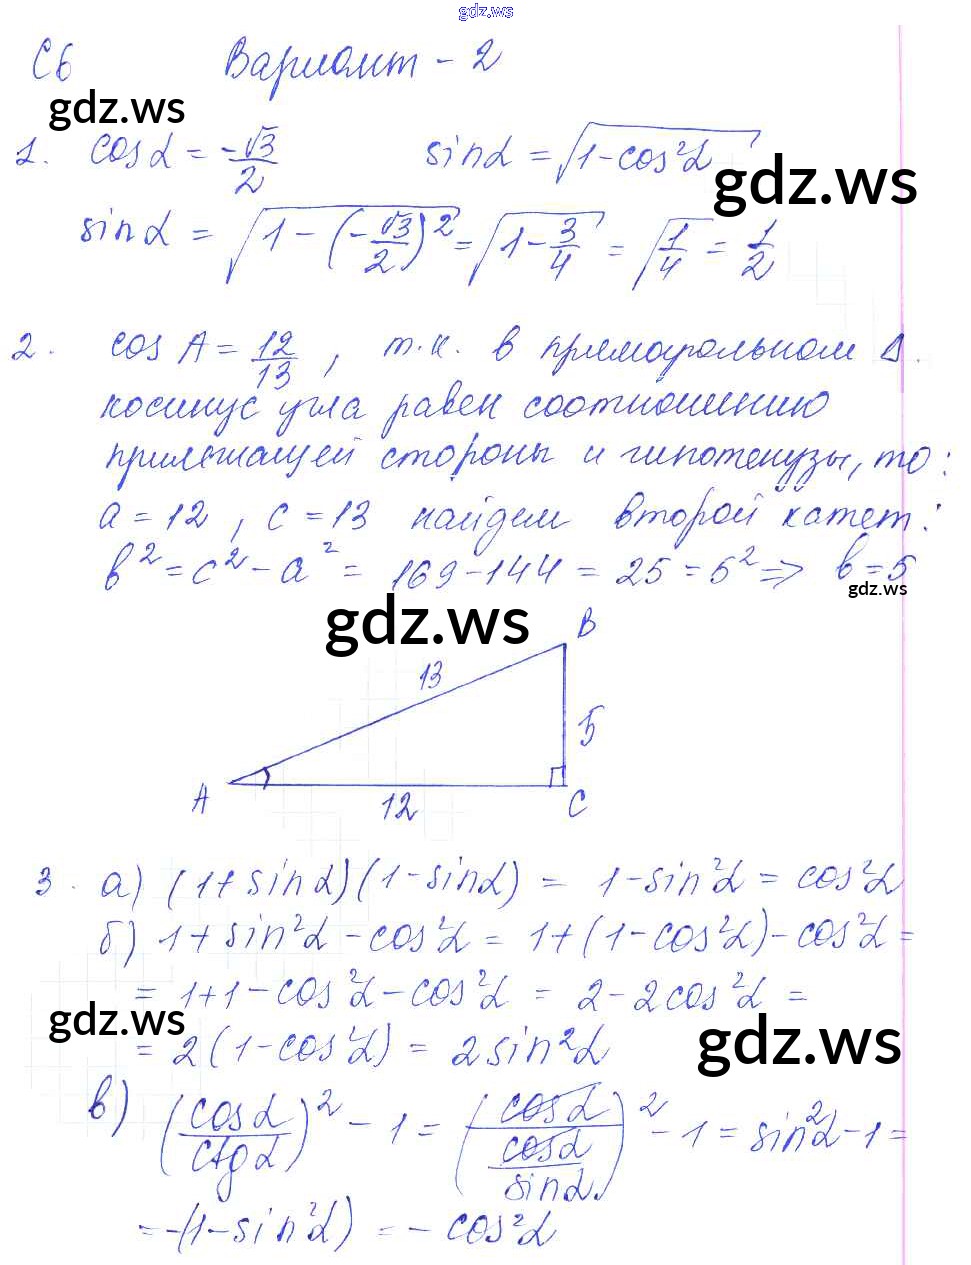 gdz.ws
С6 Вариант - 2
gdz.ws
1. cosα = -√3/2 sinα = √(1-cos²α)
gdz.ws
sinα = √(1-(-√3/2)²) = √(1-3/4) = √(1/4) = 1/2
2. cos A = 12/13, т.к. в прямоугольном Δ.
косинус угла равен соотношению
прилежащей стороны и гипотенузы, то:
a = 12, c = 13 найдем второй катет:
b² = c² - a² = 169 - 144 = 25 = 5² => b = 5
gdz.ws
gdz.ws
B
13
5
A
12
C
3. а) (1+sinα)(1-sinα) = 1-sin²α = cos²α
б) 1+sin²α - cos²α = 1+(1-cos²α)-cos²α =
= 1+1-cos²α-cos²α = 2-2cos²α =
gdz.ws
= 2(1-cos²α) = 2sin²α
gdz.ws
в) (cosα/ctgα)² - 1 = (cosα/(cosα/sinα))² - 1 = sin²α-1 =
= -(1-sin²α) = -cos²α